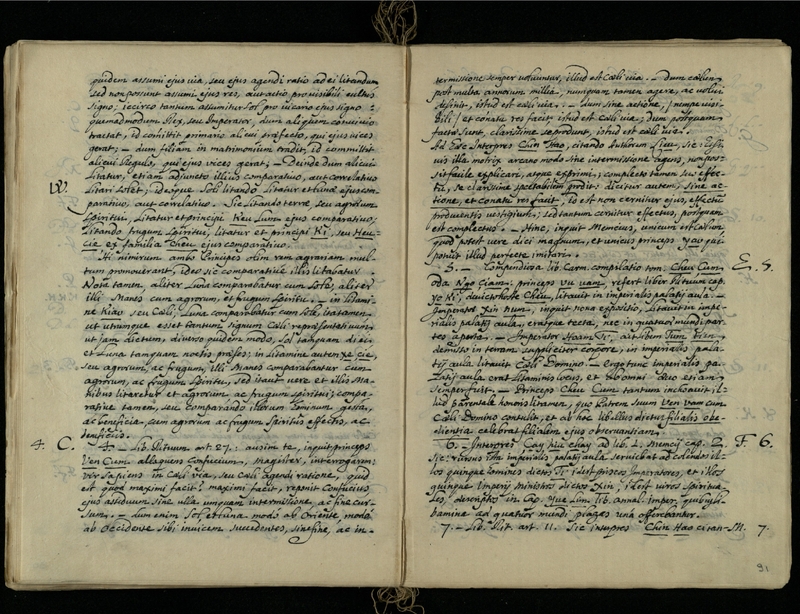 quidem assumi ejus via, seu ejus agendi ratio ad ei litandum
sed non possunt assumi ejus res, aut actio pro visibili cultus
signo; iccirco tantum assumitur Sol pro vicario ejus signo:
quemadmodum Rex, seu Imperator, dum aliquem convivio
tractat, id committit primario aulæ præfecto, qui ejus vices
gerat; — dum filiam in matrimonium tradit, id committit
alicui Regulo, qui ejus vices gerat; — Deinde dum alicui
W. litatur, etiam adjuncto illius comparativo, aut correlativo
litari solet; ideoque Soli litando litatur et Lunæ ejus com-
parativo, aut correlativo. Sic litando terræ, seu agrorum
Spiritui, litatur et principi Keu Lum ejus comparativo;
litando frugum Spiritui, litatur et principi Ki, seu Heu
cie ex familia Cheu ejus comparativo.
Hi nimirum ambo Principes olim rem agrariam mul-
tum promoverant, ideo sic comparative illis litabatur.
Nota tamen aliter Luna comparabatur cum Sole, aliter
illi Manes cum agrorum, et frugum Spiritu. — in litami-
ne Kiao seu Cæli Luna comparabatur cum Sole, ita tamen
ut utrumque esset tantum signum Cæli repræsentativum
ut jam dictum, diverso quidem modo, Sol tamquam diei,
et Luna tamquam noctis præses; in litamine autem Xa cie,
seu agrorum, ac frugum, illi Manes comparabantur cum
agrorum, ac frugum Spiritu, sed ita ut vere et illis Ma-
nibus litaretur et agrorum ac frugum spiritui; compa-
rative tamen, seu comparando illorum hominum gesta,
ac beneficia cum agrorum ac frugum Spiritus effectis, ac
beneficiis.
4. C. 4. — Lib. Rituum art. 27: ausim te, inquit princeps
Ven Cum alloquens Confucium, Magister, interrogare:
vir sapiens in Cæli via, seu Cæli agendi ratione, quid
est quod maximi facit? maximi facit, reponit Confucius
ejus assiduum sine ulla unquam intermissione, ac fine cur-
sum. — dum enim Sol et Luna modo ab Oriente, modo
ab Occidente sibi invicem succedentes, sine fine, ac in-
termissione semper volvuntur, illud est Cæli via. — Dum cælum
post multa annorum millia, nunquam tamen agere, ac volvi
desinit, istud est cæli via. — dum sine actione, (nempe visi-
bili) et conatu res facit, istud est Cæli via; dum postquam
facta sunt, clarissime se produnt, istud est cæli via.
Ad hæc Interpres Chin Hao, citando Authorem Lieu, sic:
vis illa motrix arcano modo sine intermissione agens, non pos-
sit facile explicari, atque exprimi; completo tamen suo effec-
tu, se clarissime spectabilem prodit: dicitur autem, sine ac-
tione, et conatu res facit, id est non cernitur ejus, effectu
producentis vestigium; sed tantum cernitur effectus, postquam
est completus. — Hinc, inquit Memcius, unicum est Cælum
quod potest vere dici magnum, et unicus princeps Yao qui
potuit illud perfecte imitari.
5. — Compendiosa lib. Carm. compilatio tom. Cheu Cum E. 5.
Oda Ngo Ciam: princeps Vu vam, refert liber Rituum cap.
Yo Ki, devicto hoste Cheu, litavit in imperialis palatij aula. —
Imperator Xin num, inquit nova expositio, litavit in impe-
rialis palatij aula, eratque tecta, nec in quatuor mundi par-
tes aperta. — Imperator Hoam Ti, aut ibem Tum tien,
demisso in terram suppliciter corpore, in imperialis pala-
tij aula litavit Cæli Domino. — Ergo tunc imperialis pa-
latij aula erat litaminis locus, et ab omni ævo etiam
semper fuit. — Princeps Cheu Cum tantum inchoavit il-
lud parentale honoris litamen, quo Patrem suum Ven vam cum
Cæli Domino contulit, et ab hoc lib. illius dicitur filialis obe-
dientia celebrat filialem ejus observantiam.
6. — Interpres Cay hiu chay ad lib. 2. Memcij cap. 2. F. 6.
sic: versus ista imperialis palatij aula serviebat ad colendos il-
los quinque homines dictos Ti, id est priscos Imperatores, et illos
quinque Imperij ministros dictos Xin, id est viros Spiritua-
les, descriptos in Cap. Yue lim lib. annal. imper. quibus li-
bamine ad quatuor mundi plagas una offerebantur.
7. — Lib. Rit. art. 11. sic Interpres Chin Hao citan- M. 7.
91